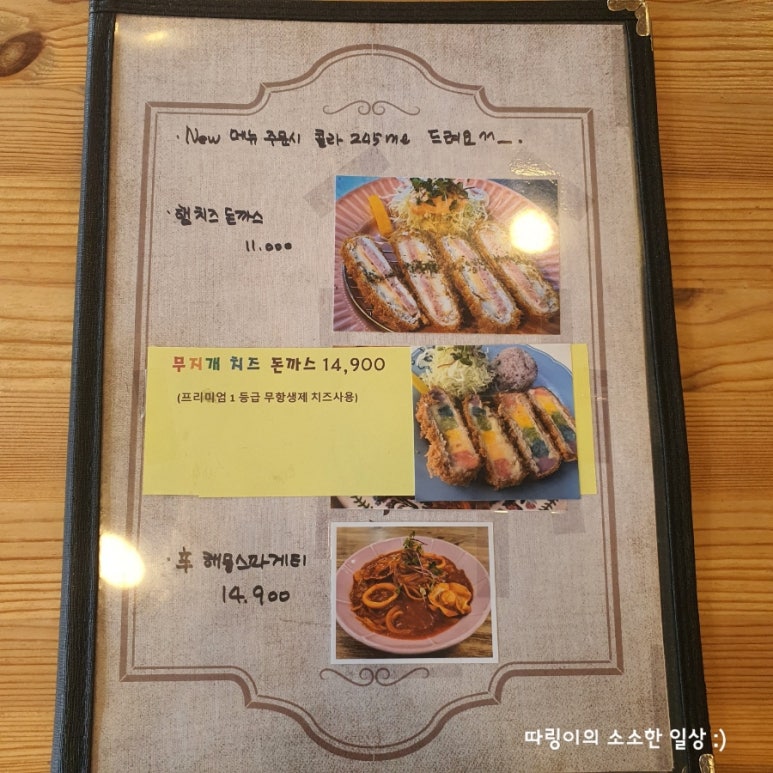 · New 메뉴 주문시 콜라 245ml 드려요^^_.
· 햄치즈 돈까스
11.000
무지개 치즈 돈까스 14,900
(프리미엄 1 등급 무항생제 치즈사용)
· 辛 해물스파게티
14.900
따링이의 소소한 일상 :)